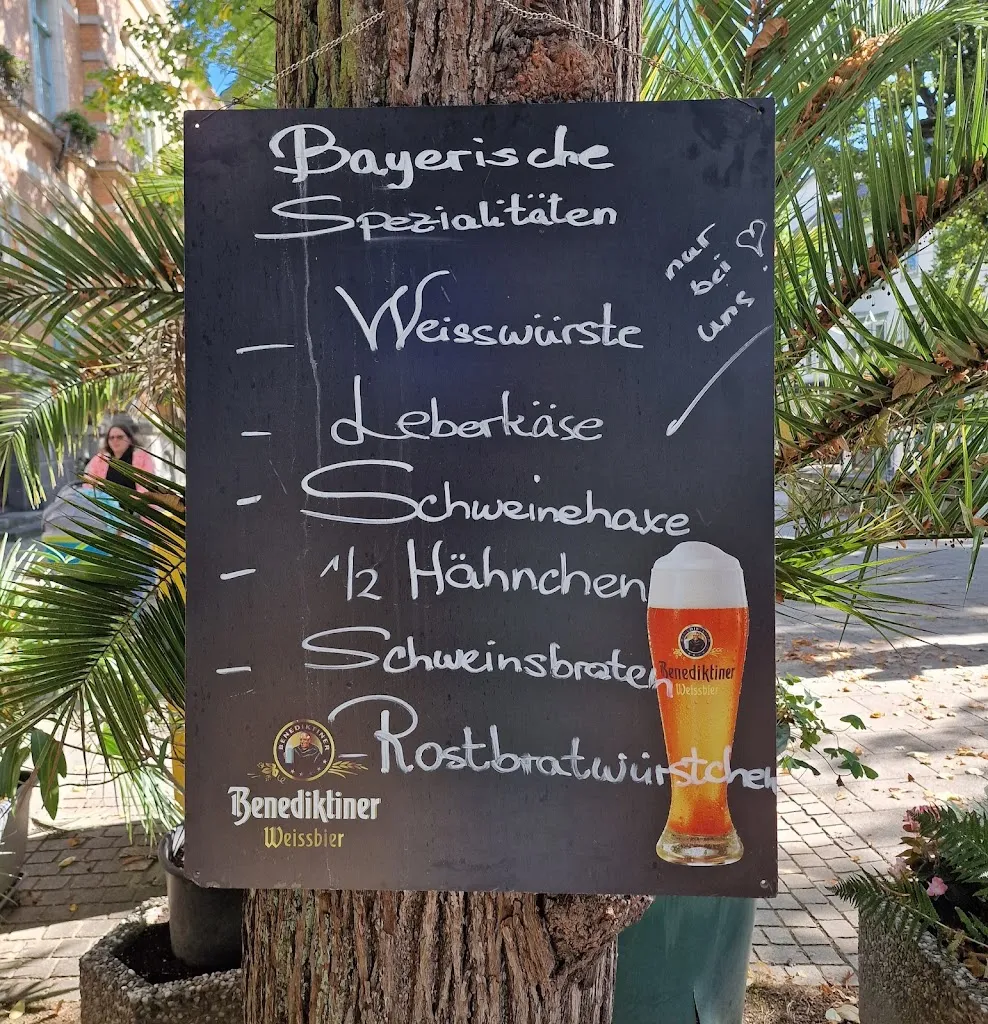 Bayerische
Spezialitäten
nur
bei ♡
uns!
- Weisswürste
- Leberkäse
- Schweinehaxe
- 1/2 Hähnchen
- Schweinsbraten
- Rostbratwürstchen
Benediktiner
Weissbier
BENEDIKTINER
Benediktiner
Weissbier